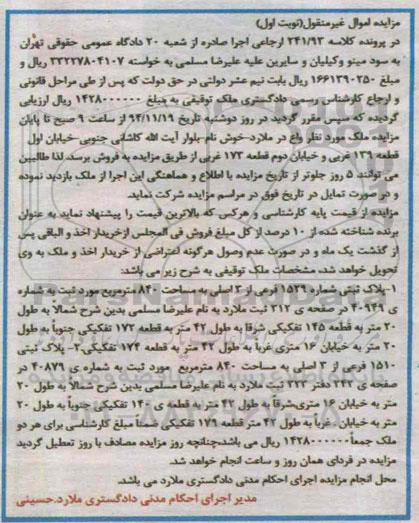 مزایده اموال غیرمنقول(نوبت اول)
در پرونده کلاسه ۲۴۱/۹۳ ارجاعی اجرا صادره از شعبه ۲۰ دادگاه عمومی حقوقی تهران
به سود مینو وکیلیان و سایرین علیه علیرضا مسلمی به خواسته ۳۳۲۲۷۸۰۴۱۰۷ ریال و
مبلغ ۱۶۶۱۳۹۰۲۵۰ ریال بابت نیم عشر دولتی در حق دولت که پس از طی مراحل قانونی
و ارجاع کارشناس رسمی دادگستری ملک توقیفی به مبلغ ۱۴۲۸۰۰۰۰۰۰۰ ریال ارزیابی
گردیده که سپس مقرر گردید در روز دوشنبه تاریخ ۹۴/۱۱/۱۹ از ساعت ۹ صبح تا پایان
مزایده ملک مورد تعارفاع در ملارد-خوش نام-بلوار آیت الله کاشانی جنوبی-خیابان اول
قطعه ۱۳۶ غربی و خیابان دوم قطعه ۱۷۳ غربی از طریق مزایده به فروش برسد. لذا طالبین
می توانند ۵ روز جلوتر از تاریخ مزایده با اطلاع و هماهنگی این اجرا از ملک بازدید نموده
و در صورت تمایل در تاریخ فوق در مراسم مزایده شرکت نماید.
مزایده از قیمت پایه کارشناسی و هرکس که بالاترین قیمت را پیشنهاد نماید به عنوان
برنده شناخته شده از ۱۰ درصد از کل مبلغ فروش فی المجلس ازخریدار اخذ و الباقی پس
از گذشت یک ماه و در صورت عدم وصول هرگونه اعتراضی از خریدار اخذ و ملک به وی
تحویل خواهد شد، مشخصات ملک توقیفی به شرح زیر می باشد:
۱-پلاک ثبتی شماره ۱۵۲۹ فرعی از ۳ اصلی به مساحت ۸۴۰ مترمربع مورد ثبت به شماره
ی ۴۰۹۴۹ در صفحه ی ۳۱۲ ثبت ملارد به نام علیرضا مسلمی بدین شرح شمالا به طول
۲۰ متر به قطعه ۱۴۵ تفکیکی شرقا به طول ۴۲ متر به قطعه ۱۷۲ تفکیکی جنوباً به طول
۲۰ متر به خیابان ۱۶ متری غرباً به طول ۴۲ متر به قطعه ۱۷۴ تفکیکی۲- پلاک ثبتی
۱۵۱۰ فرعی از ۳ اصلی به مساحت ۸۴۰ مترمربع مورد ثبت به شماره ی ۴۰۸۷۱ در
صفحه ی ۲۴۲ دفتر ۲۲۳ ثبت ملارد به نام علیرضا مسلمی بدین شرح شمالاً به طول ۲۰
متر به خیابان ۱۶ متری،شرقا به طول ۴۲ متر به قطعه ی ۱۴۰ تفکیکی جنوباً به طول ۲۰
متر به خیابان . غرباً به طول ۴۲ متر قطعه ۱۷۹ تفکیکی ضمناً مبلغ کارشناسی برای هر دو
ملک جمعاً ۱۴۲۸۰۰۰۰۰۰۰ ریال می باشد،چنانچه روز مزایده مصادف با روز تعطیل گردید
مزایده در فردای همان روز و ساعت انجام خواهد شد.
محل انجام مزایده اجرای احکام مدنی دادگستری ملارد می باشد.
مدیر اجرای احکام مدنی دادگستری ملارد.حسینی